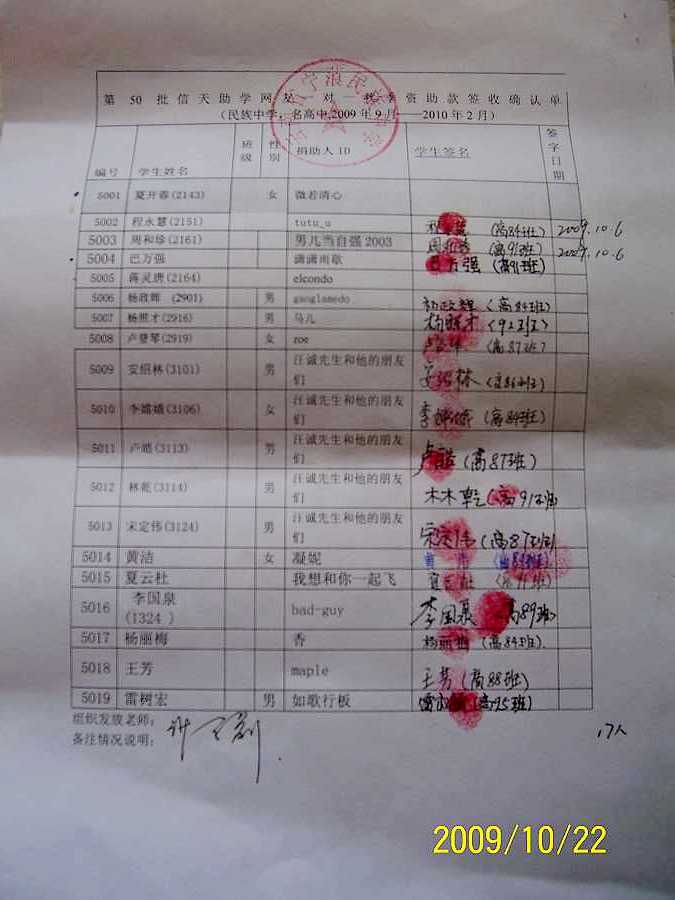 第 50 批信天助学网友一对一教学资助款签收确认单
(民族中学,名高中2009年9月——2010年2月)
编号 学生姓名 班级 性别 捐助人 ID 学生签名 签字日期
5001 夏开蓉(2143) 女 微若清心
5002 程永慧(2151) tutu_u (高84班) 2009.10.6
5003 周和珍(2161) 男儿当自强2003 周和珍 (高91班) 2009.10.6
5004 巴万强 潇潇雨歇 巴万强 (高91班)
5005 蒋灵唐(2164) elcondo
5006 杨政辉 (2901) 男 gaoglamedo 杨政辉 (高84班)
5007 杨照才(2916) 男 马儿 杨照才 (92班)
5008 卢登琴(2919) 女 roe (高87班)
5009 安绍林(3101) 男 汪诚先生和他的朋友们 安绍林 (高86班)
5010 李嬌嬌(3106) 女 汪诚先生和他的朋友们 (高84班)
5011 卢皓(3113) 男 汪诚先生和他的朋友们 (高87班)
5012 林乾(3114) 男 汪诚先生和他的朋友们 林乾 (高91班)
5013 宋定伟(3124) 男 汪诚先生和他的朋友们 宋定伟 (高87班)
5014 黄洁 女 凝妮 黄洁 (高84班)
5015 夏云杜 我想和你一起飞 (高91班)
5016 李国泉(1324 ) bad-guy 李国泉 (高89班)
5017 杨丽梅 香 杨丽梅 (高84班).
5018 王芳 maple 王芳 (高88班)
5019 雷树宏 男 如歌行板 (高95班)
组织发放老师:
备注情况说明:
17人
2009/10/22